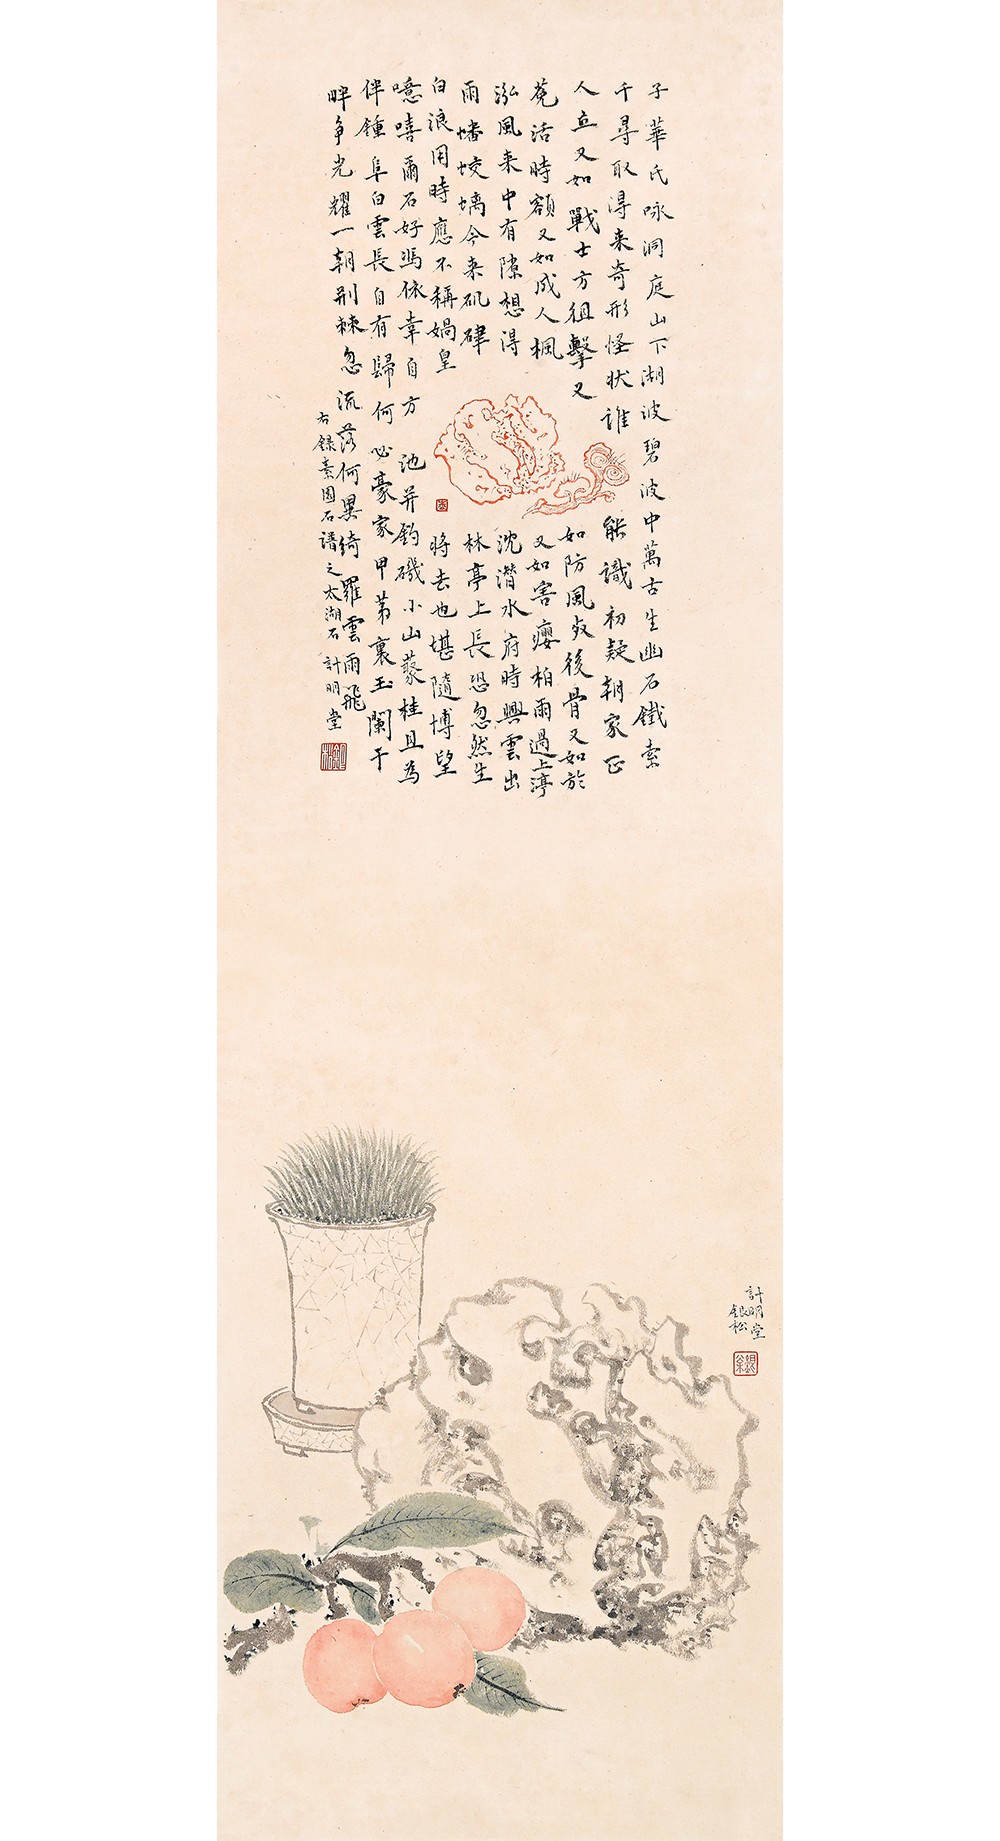 子華氏咏洞庭山下湖波碧波中萬古生幽石鐵索
千尋取得来奇形怪状誰能識初疑朝家正
人立又如戰士方狙擊又如防風死後骨又如於
菟活時額又如成人楓又如害癭柏雨過上渟
泓風来中有隙想得沈潛水府時興雲出
雨蟠蛟螭今来矶硉林亭上長恐忽然生
白浪用時應不稱媧皇将去也堪隨博望
噫嘻爾石好馮依幸自方池并釣磯小山蓊桂且為
伴鍾阜白雲長自有歸何必豪家甲第裏玉闌干
畔争光耀一朝荆棘忽流落何異綺羅雲雨飛
右録素園石譜之太湖石 計明堂
計明堂
銀松